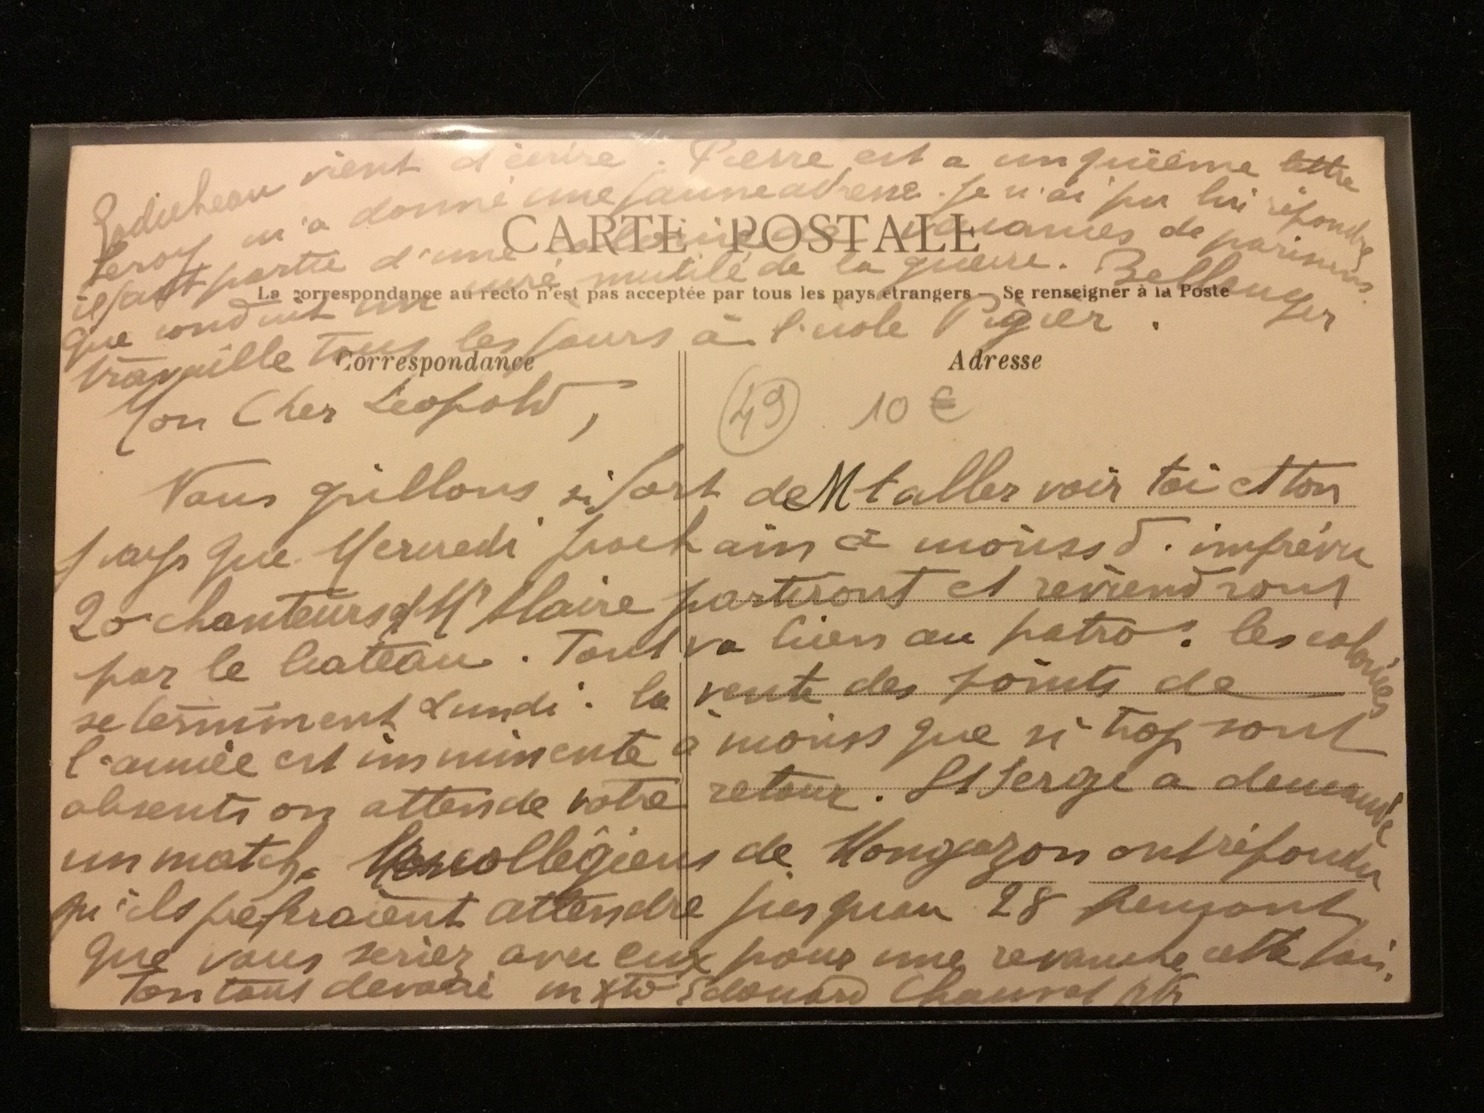 vient d'écrire. Pierre est a cinquième lettre
Leroy m'a donné une fausse adresse. Je n'ai pu lui répondre
il fait partie d'une colonie de vacances de parisiens.
que conduit un curé mutilé de la guerre. Bellanger
travaille tous les jours à l'école Pigier.
CARTE POSTALE
La correspondance au recto n'est pas acceptée par tous les pays étrangers — Se renseigner à la Poste
Correspondance
Adresse
Mon Cher Léopold,
49 10 €
Nous grillons si fort de M t'aller voir toi et ton
pays que Mercredi prochain à moins d'imprévu
20 chanteurs et Mr Maire partiront et reviendront
par le bateau. Tout va bien au patro. les colonies
se terminent Lundi. la vente des points de
l'année est imminente à moins que si trop sont
absents on attende votre retour. St Serge a demandé
un match. Les collégiens de Mongazon ont répondu
qu'ils préféraient attendre jusqu'au 28
que vous seriez avec eux pour une revanche cette fois.
Ton tout dévoué in Xto Edouard Chauvat